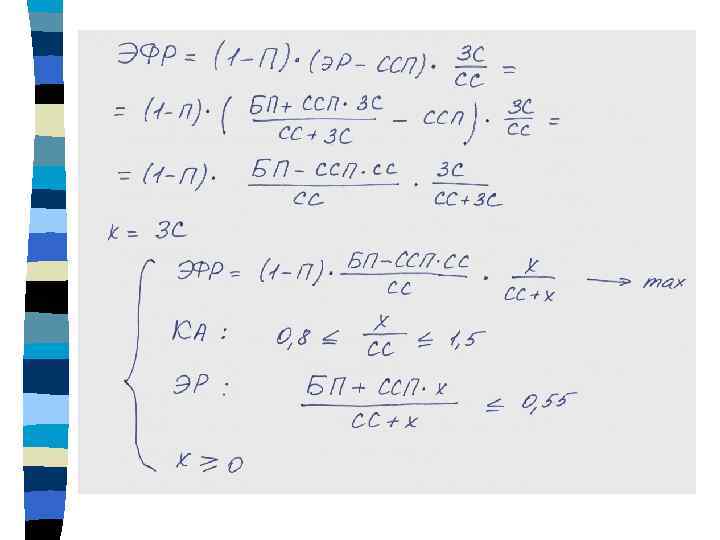 ЭФР = (1-П)·(ЭР - ССП)· ЗС/СС =
= (1-П)·( (БП + ССП·ЗС)/(СС + ЗС) - ССП)· ЗС/СС =
= (1-П)· (БП - ССП·СС)/СС · ЗС/(СС+ЗС)
x = ЗС
ЭФР = (1-П)· (БП-ССП·СС)/СС · x/(СС+x) → max
КА: 0,8 ≤ x/СС ≤ 1,5
ЭР: (БП + ССП·x)/(СС+x) ≤ 0,55
x ≥ 0